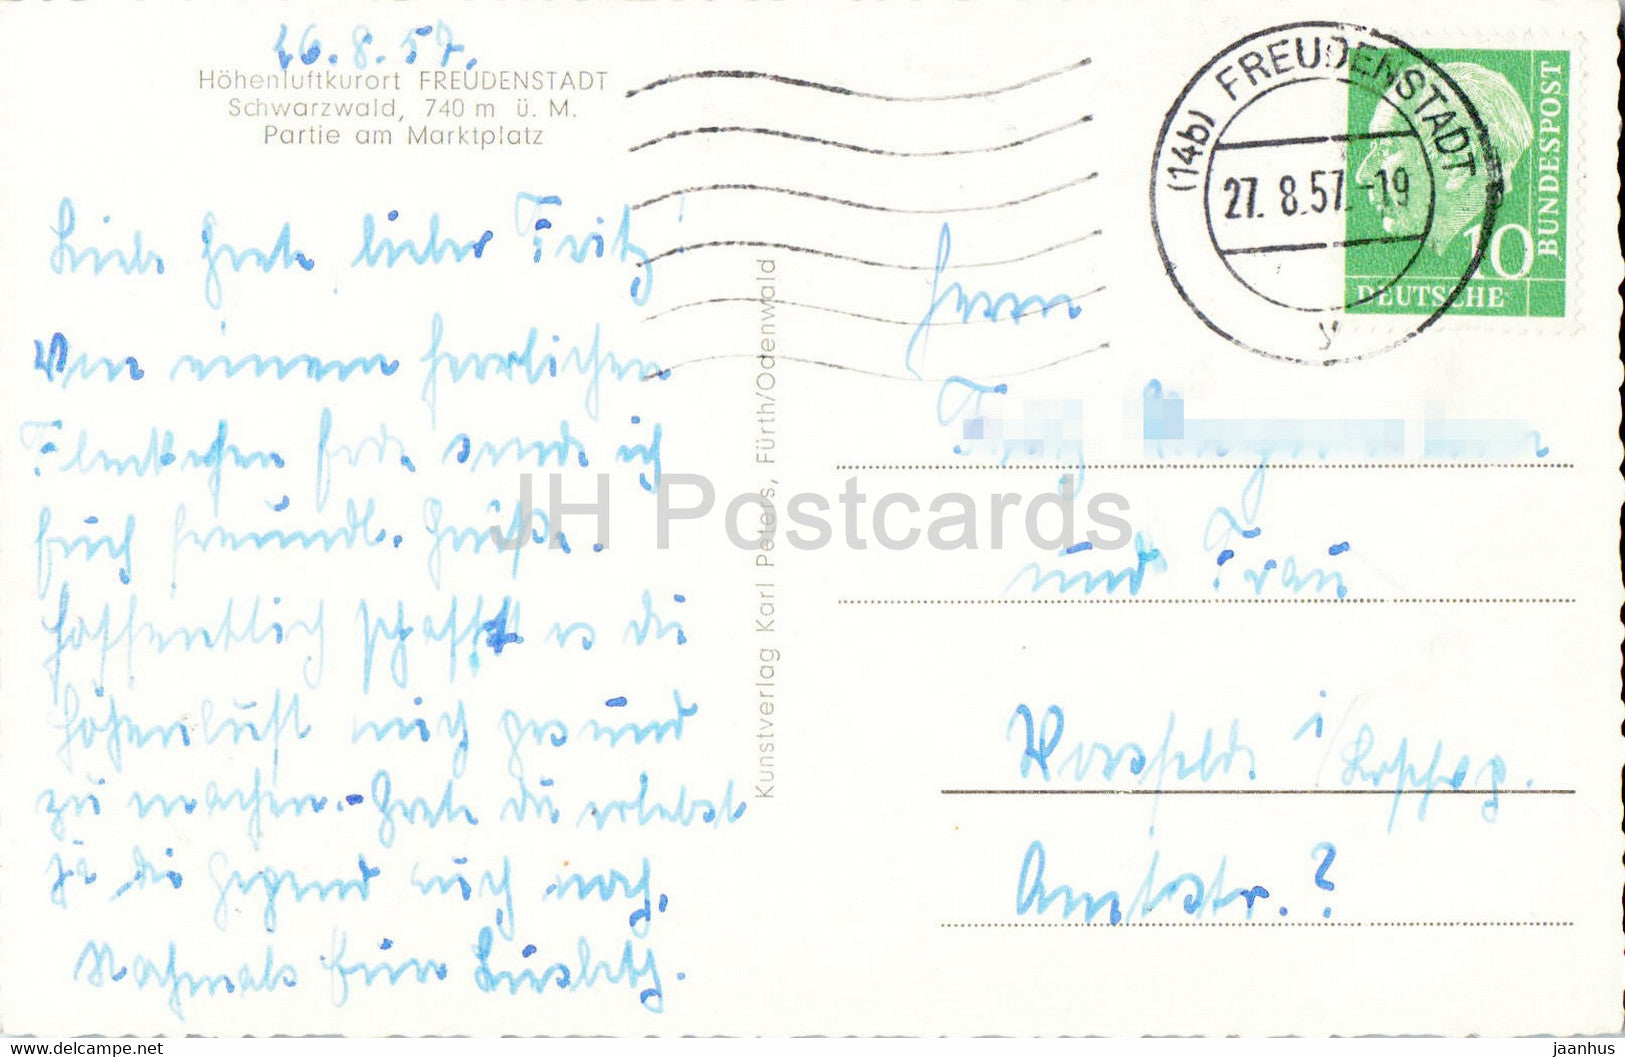 26.8.57.
Höhenluftkurort FREUDENSTADT
Schwarzwald, 740 m ü. M.
Partie am Marktplatz
Liebe Grete lieber Fritz!
Von einem herrlichen
Fleckchen Erde sende ich
Euch freundl. Grüße.
Hoffentlich schafft es die
Höhenluft mich gesund
zu machen. - Grete du erlebst
ja die Gegend auch noch.
Nochmals Eure
Kunstverlag Karl Peters, Fürth/Odenwald
(14b) FREUDENSTADT
27.8.57.-19
y
DEUTSCHE
BUNDESPOST
10
Herrn
und Frau
i/
Amtstr. ?
JH Postcards
www.delcampe.net
jaanhus